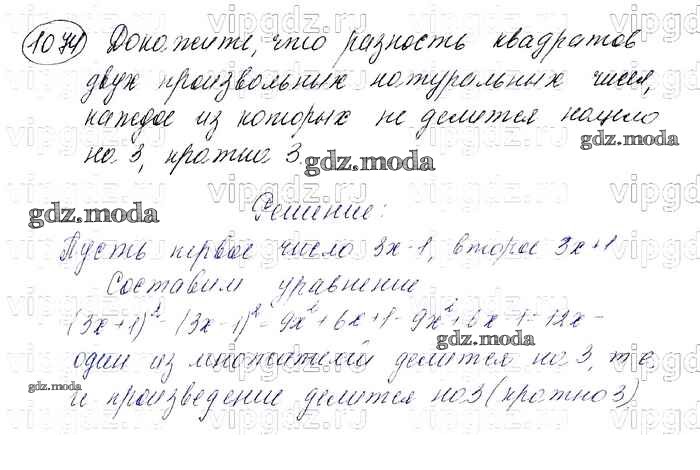 1074 Докажите, что разность квадратов
двух произвольных натуральных чисел,
каждое из которых не делится нацело
на 3, кратна 3.
Решение:
Пусть первое число 3x-1, второе 3x+1
Составим уравнение
(3x+1)² - (3x-1)² = 9x² + 6x + 1 - 9x² + 6x - 1 = 12x -
один из множителей делится на 3, т.е.
и произведение делится на 3 (кратно 3)
gdz.moda
gdz.moda
gdz.moda
gdz.moda
gdz.moda
vipgdz.ru